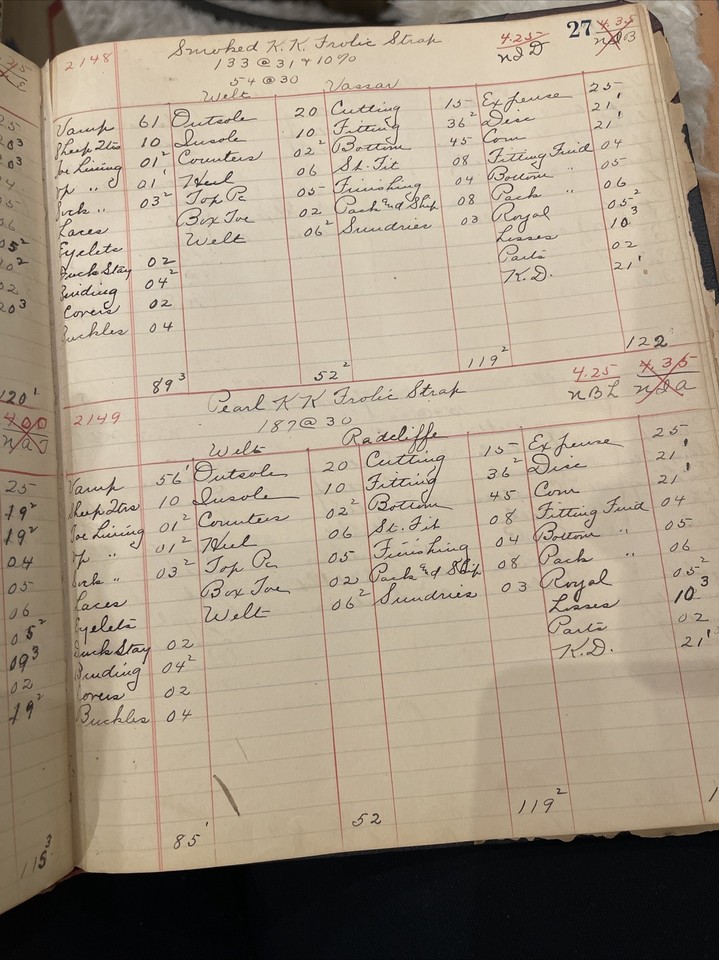 27
2148 Smoked K.K. Frolic Strap 4.25 4.35
133 @ 31 + 10% NJD NJB
54 @ 30
Welt Vassar
Vamp 61 Outsole 20 Cutting 15 Expense 25
Sheep Qtrs 10 Insole 10 Fitting 36² Disc 21'
Toe Lining 01² Counters 02² Bottom 45 Com 21'
Top " 01' Heel 06 St. Fit 08 Fitting Fuid 04
03² Top Pc 05 Finishing 04 Bottom " 05
Laces Box Toe 02 Pack & Ship 08 Pack " 06
Eyelets Welt 06² Sundries 03 Royal 05²
Duck Stay 02 Losses 10³
Binding 04² Parts 02
Covers 02 K.D. 21'
Buckles 04
89³ 52² 119² 122
2149 Pearl K K Frolic Strap 4.25 4.35
187 @ 30 NBL
Welt Radcliffe
Vamp 56' Outsole 20 Cutting 15 Expense 25
Sheep Qtrs 10 Insole 10 Fitting 36² Disc 21'
Toe Lining 01² Counters 02² Bottom 45 Com 21'
Top " 01² Heel 06 St. Fit 08 Fitting Fuid 04
03² Top Pc 05 Finishing 04 Bottom " 05
Laces Box Toe 02 Pack & Ship 08 Pack " 06
Eyelets Welt 06² Sundries 03 Royal 05²
Duck Stay 02 Losses 10³
Binding 04² Parts 02
Covers 02 K.D. 21'
Buckles 04
85' 52 119²